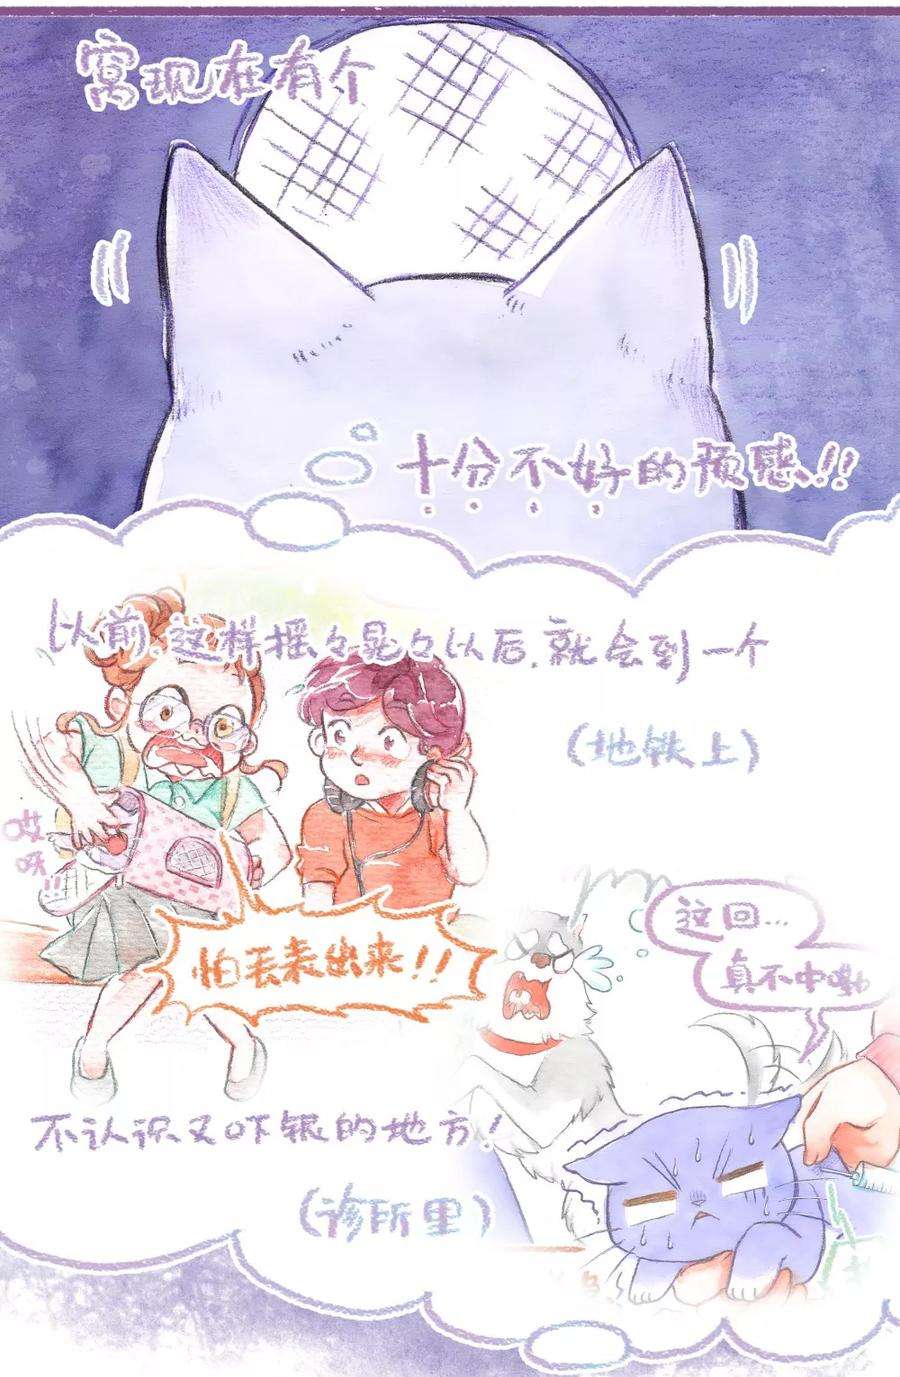 窝现在有个
十分不好的预感!!
以前,这样摇々晃々以后,就会到一个
(地铁上)
哎
呀!!
怕丢来出来!!
这回...
真不中嘞
不认识又吓银的地方!
(诊所里)